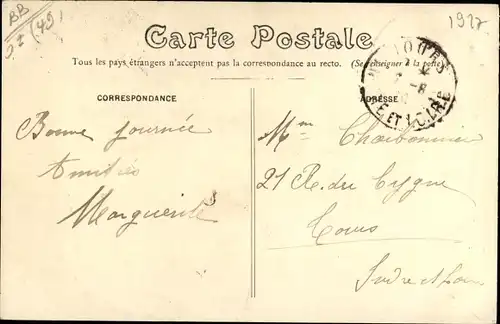 BB
(49)
1927
Carte Postale
Tous les pays étrangers n'acceptent pas la correspondance au recto. (Se renseigner à la poste)
CORRESPONDANCE
ADRESSE
TOURS
ET LOIRE
Bonne journée
Amitiés
Marguerite
Mme Charbonnier
21 R. du Cygne
Tours
Indre et Loire